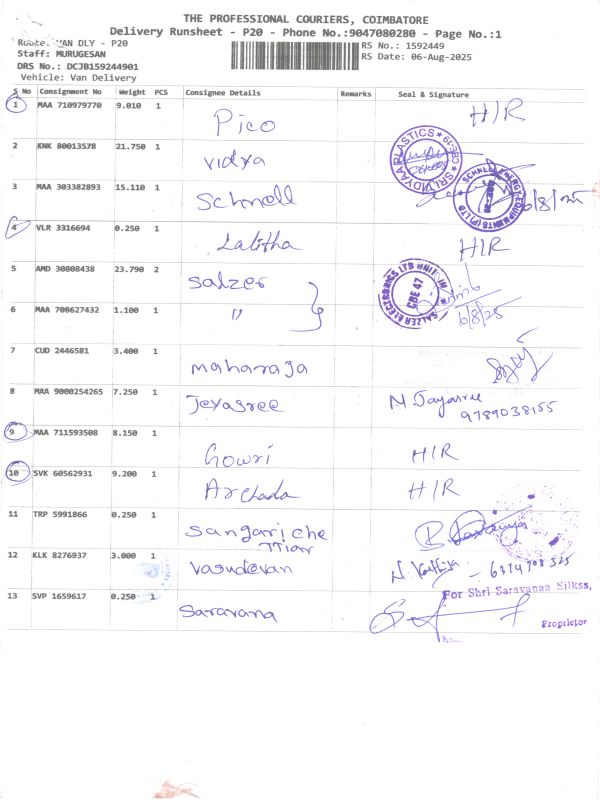 THE PROFESSIONAL COURIERS, COIMBATORE
Delivery Runsheet - P20 - Phone No.:9047080280 - Page No.:1
Route: VAN DLY - P20
RS No.: 1592449
Staff: MURUGESAN
RS Date: 06-Aug-2025
DRS No.: DCJB159244901
Vehicle: Van Delivery
S No Consignment No Weight PCS Consignee Details Remarks Seal & Signature
1 MAA 710979770 9.010 1 Pico H/R
2 KNK 80013578 21.750 1 vidya SRI VIDYAA PLASTICS CBE-19
3 MAA 303382893 15.110 1 Schnell SCHNELL ENERGY EQUIPMENTS (P) LTD 6/8/25
4 VLR 3316694 0.250 1 Lalitha H/R
5 AMD 30808438 23.790 2 Salzer SALZER ELECTRONICS LTD UNIT-IN CBE 47 6/8/25
6 MAA 708627432 1.100 1 "
7 CUD 2446581 3.400 1 maharaja
8 MAA 9000254265 7.250 1 Jeyasree N. Jayasree
9789038155
9 MAA 711593508 8.150 1 Gowri H/R
10 SVK 60562931 9.200 1 Archada H/R
11 TRP 5991866 0.250 1 Sangariche
ttiar
12 KLK 8276937 3.000 1 vasudevan
13 SVP 1659617 0.250 1 Saravana For Shri Saravanaa Silkss,
Proprietor